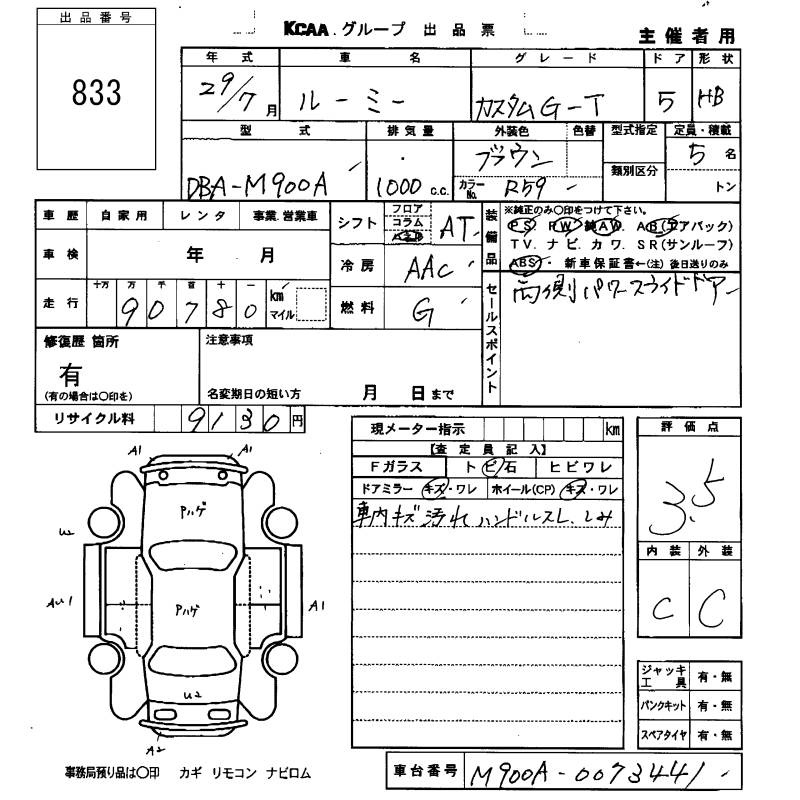 出品番号
833
KCAA グループ 出品票
主催者用
年式 車名 グレード ドア 形状
29/7月 ルーミー カスタムG-T 5 HB
型式 排気量 外装色 色替 型式指定 定員・積載
DBA-M900A 1000 c.c. ブラウン 類別区分 5名
カラーNo. R59 トン
車歴 自家用 レンタ 事業.営業車 シフト フロア コラム インパネ AT
装備品 ※純正のみ〇印をつけて下さい。
PS. PW. 純AW. AB(エアバック)
TV. ナビ. カワ. SR(サンルーフ)
ABS・ 新車保証書←(注) 後日送りのみ
車検 年 月 冷房 AAC
走行 十万 万 千 百 十 一 km マイル
90780
燃料 G
セールスポイント 両側パワースライドドアー
修復歴 箇所 注意事項
有
(有の場合は〇印を) 名変期日の短い方 月 日まで
リサイクル料 9130円
現メーター指示 km
【査定員記入】
Fガラス トビ石 ヒビワレ
ドアミラー キズ・ワレ ホイール(CP) キズ・ワレ
車内キズ 汚れ ハンドルスレ. しみ
評価点
3.5
内装 外装
C C
A1 A1
Pハゲ
U2
Pハゲ
AU1 A1
U2
A2
ジャッキ工具 有・無
パンクキット 有・無
スペアタイヤ 有・無
事務局預り品は〇印 カギ リモコン ナビロム
車台番号 M900A-0073441